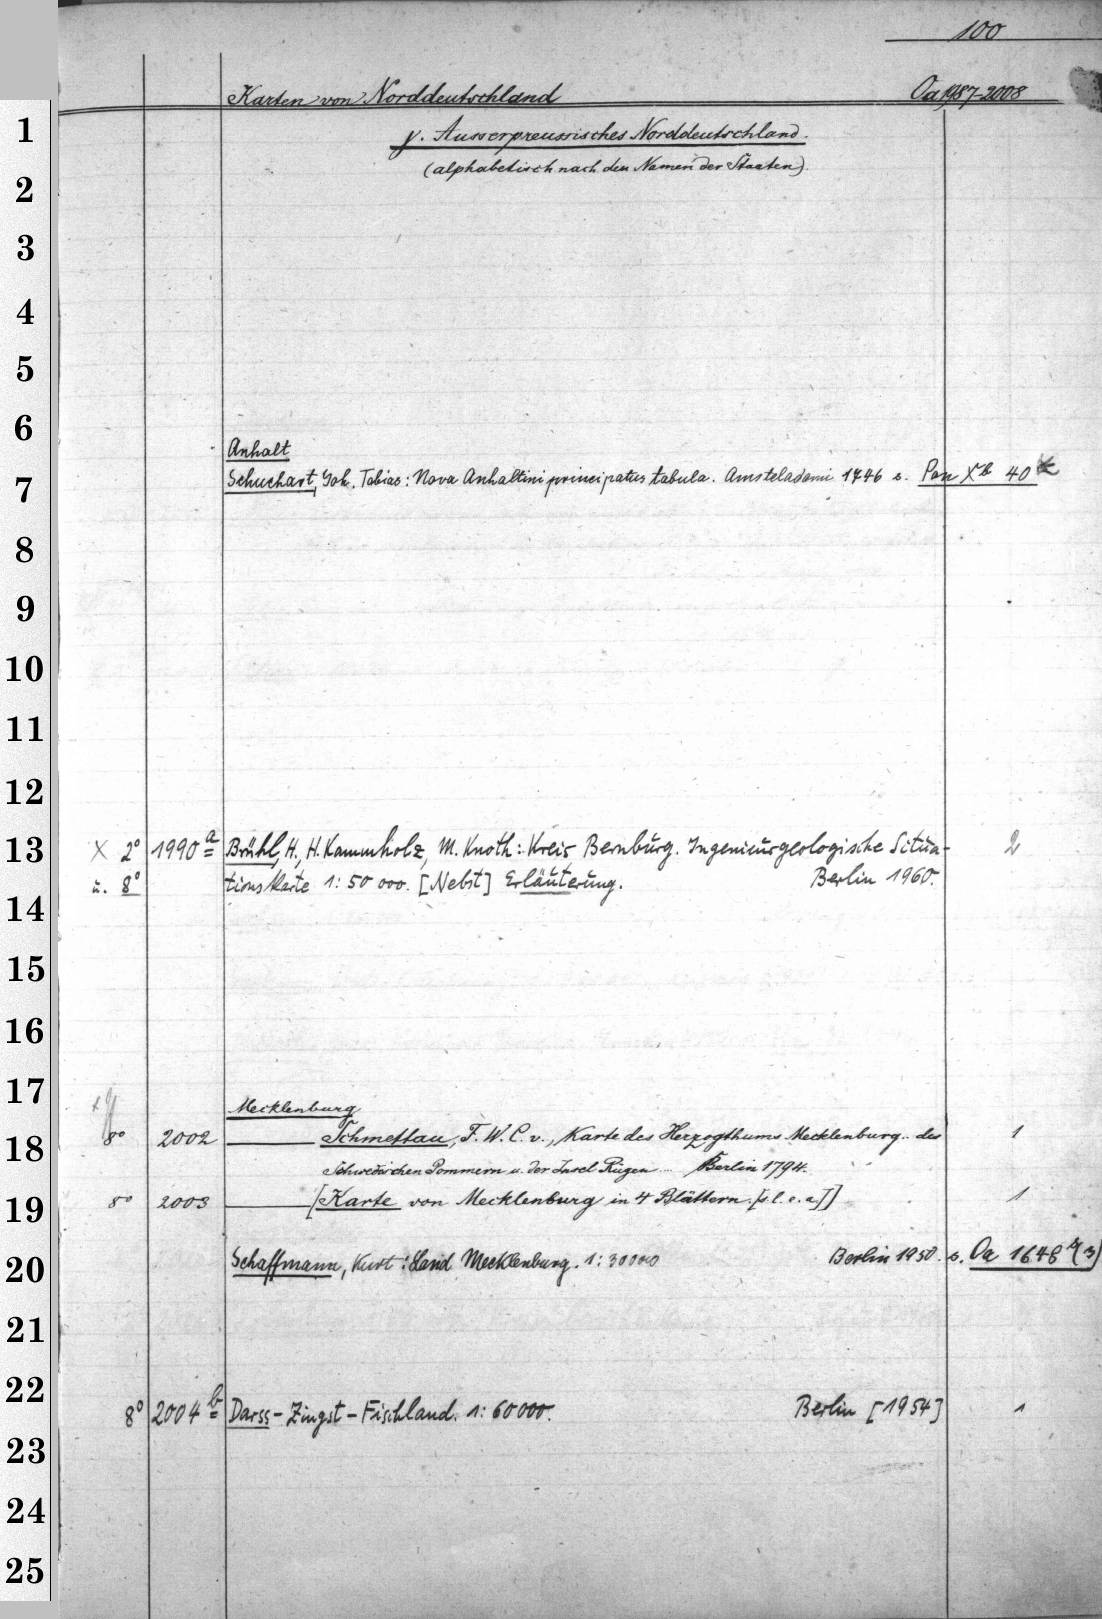 100
Karten von Norddeutschland Oa 1987-2008
1
γ. Ausserpreussisches Norddeutschland.
2
(alphabetisch nach den Namen der Staaten).
3
4
5
6
Anhalt
7
Schuchart, Joh. Tobias: Nova Anhaltini principatus tabula. Amsteladami 1746 s. Pon Xb 40
8
9
10
11
12
13
X 2° 1990 a Brühl, H., H. Kammholz, M. Knoth: Kreis Bernburg. Ingenieurgeologische Situa- 2
u. 8° tionskarte 1:50 000. [Nebst] Erläuterung. Berlin 1960.
14
15
16
17
Mecklenburg
18
8° 2002 Schmettau, F. W. C. v., Karte des Herzogthums Mecklenburg.. des 1
Schwedischen Pommern u. der Insel Rügen ... Berlin 1794.
19
8° 2003 [Karte von Mecklenburg in 4 Blättern. [s. l. e. a.]] 1
20
Schaffmann, Kurt: Land Mecklenburg. 1:30000 Berlin 1950. s. Oa 1648 (3)
21
22
8° 2004 b Darss-Zingst-Fischland. 1:60 000. Berlin [1954] 1
23
24
25